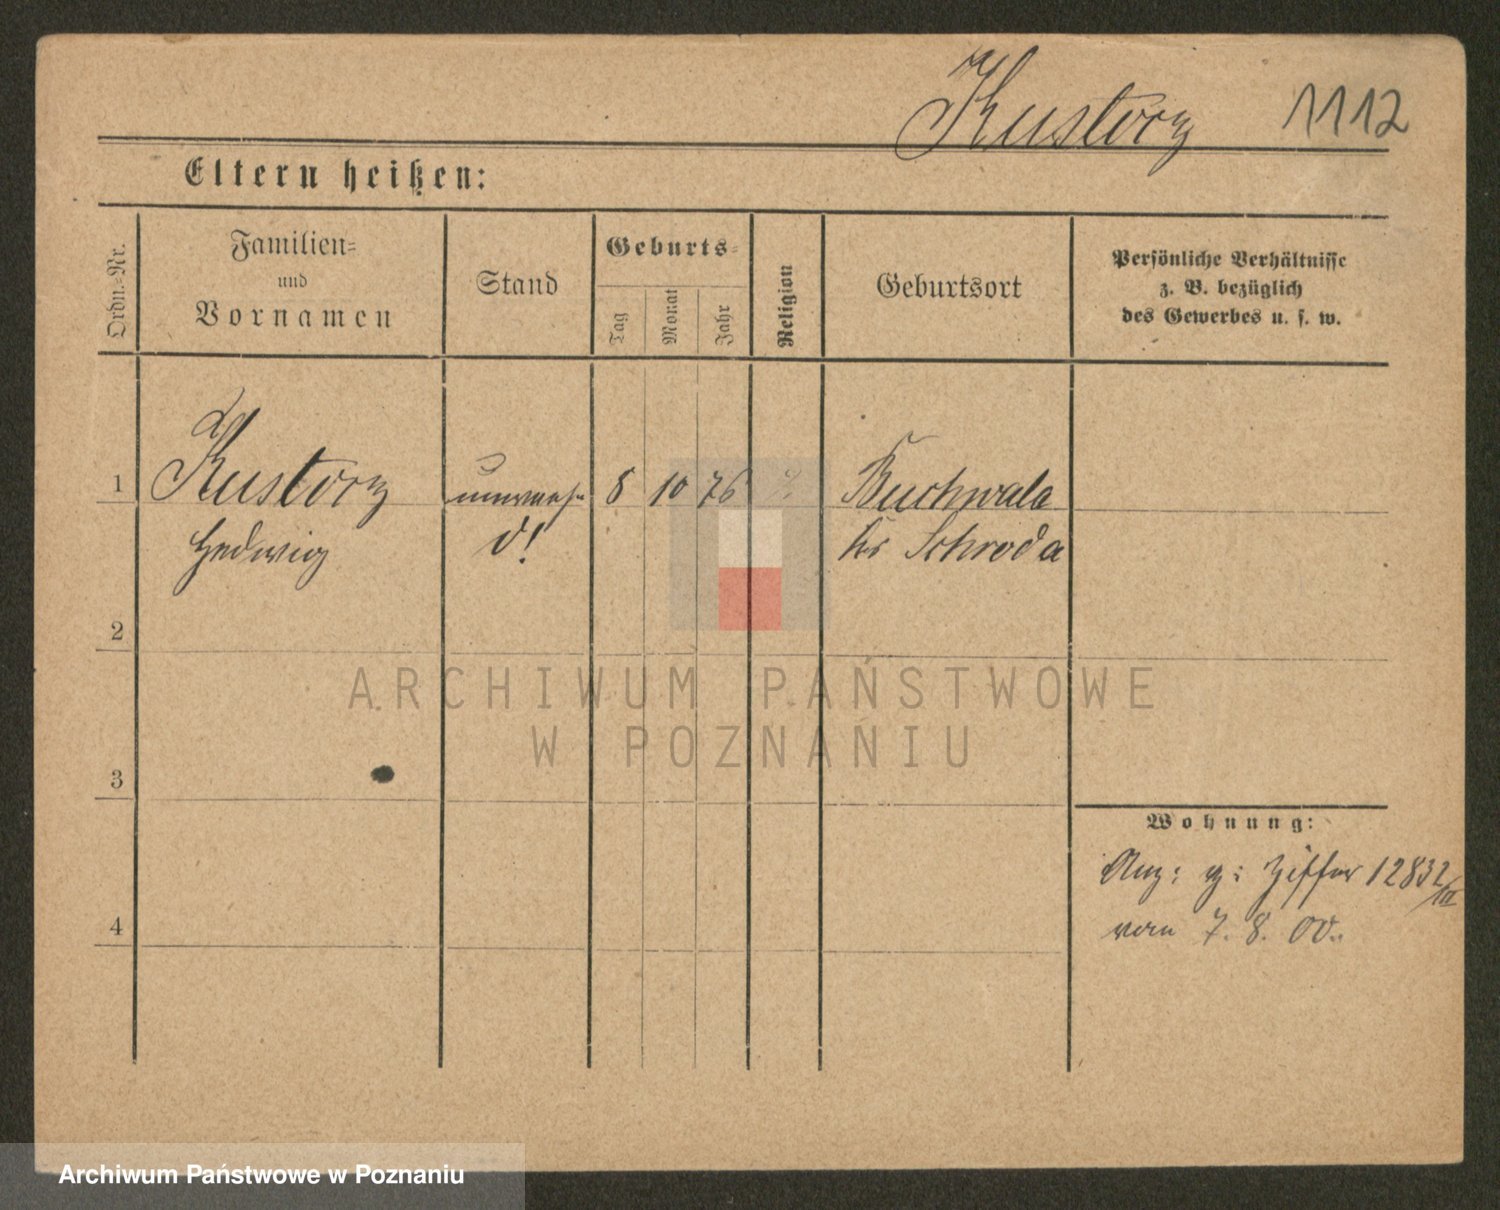 Kustorz 1112
Eltern heißen:
Ordn.-Nr.
Familien-
und
Vornamen
Stand
Geburts-
Tag
Monat
Jahr
Religion
Geburtsort
Persönliche Verhältnisse
z. B. bezüglich
des Gewerbes u. s. w.
1 Kustorz 8 10 76 Buchwald
Hedwig Schroda
2
3
4
Wohnung:
Anz: Ziffer 12832/III
vom 7. 8. 00.
ARCHIWUM PAŃSTWOWE
W POZNANIU
Archiwum Państwowe w Poznaniu